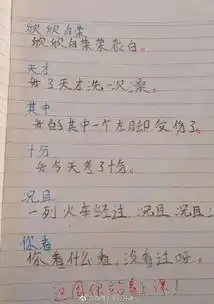 欣欣向荣
欣欣向荣荣表白。
天才
我3天才洗一次澡。
其中
我的其中一个左耳却受伤了。
十分
我今天考了十分。
况且
一列火车经过，况且况且
你看
你看什么看，没看过呀。
这周你站着上课！